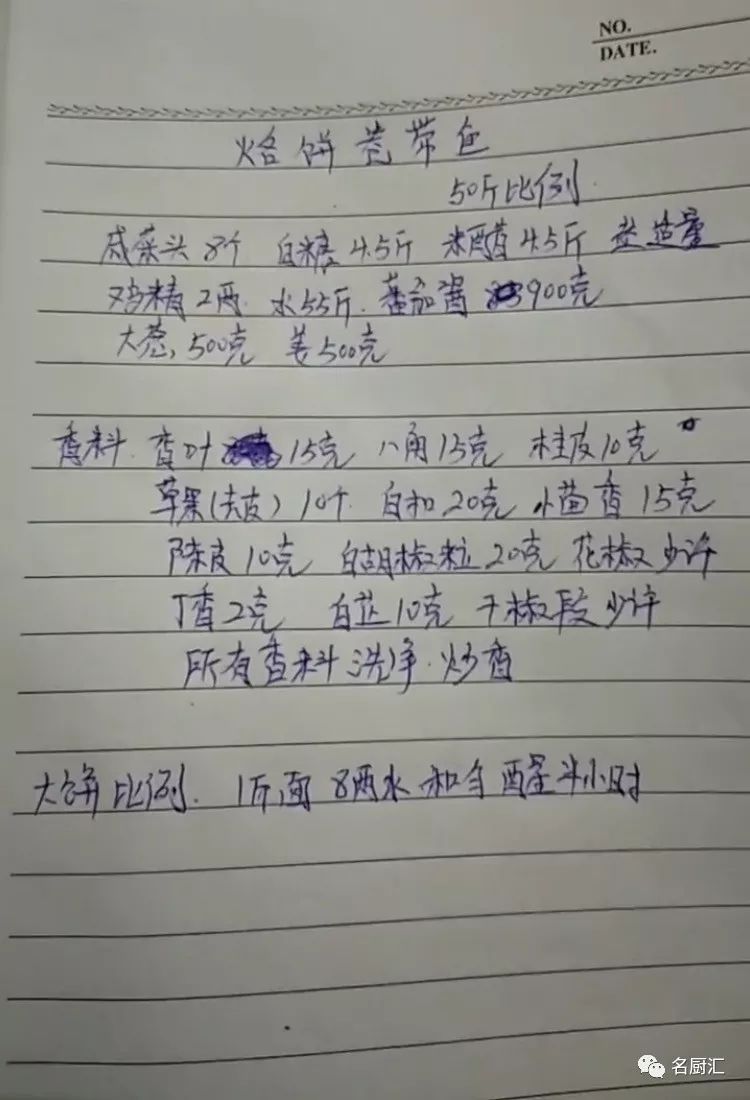 NO.
DATE.
烙饼卷带鱼
50斤比例
咸菜头8个 白糖4.5斤 米醋4.5斤 盐适量
鸡精2两. 水55斤. 蕃茄酱900克
大葱, 500克 姜500克
香料. 香叶15克 八角15克 桂皮10克
草果(去皮) 10个 白扣20克 小茴香15克
陈皮10克 白胡椒粒20克 花椒少许
丁香2克 白芷10克 干椒段少许
所有香料洗净. 炒香
大饼比例. 1斤面 8两水 和匀 醒半小时
名厨汇